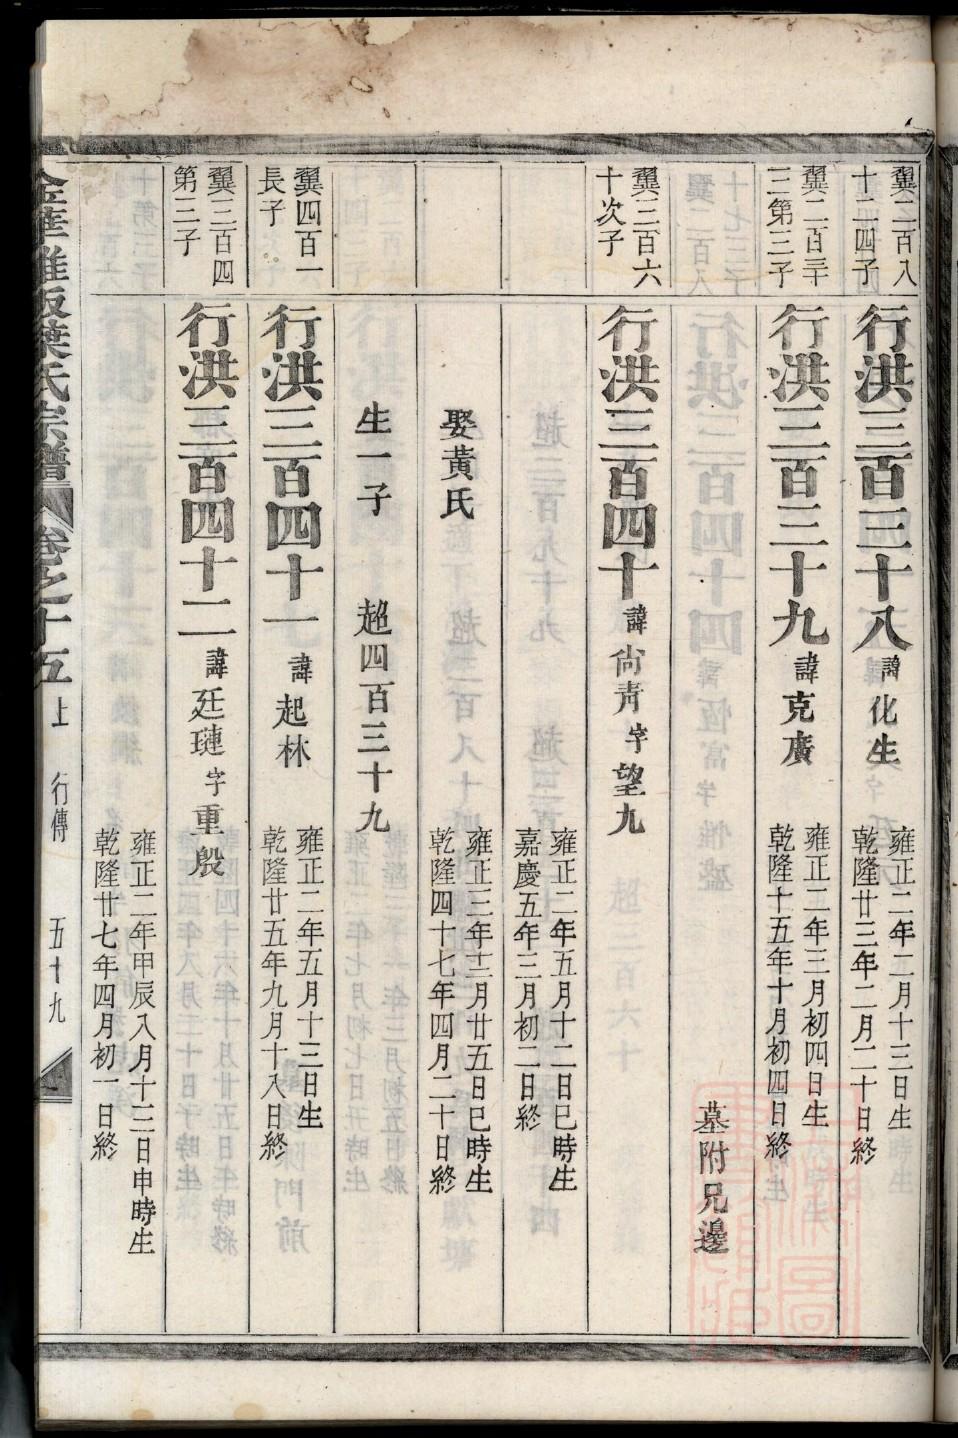 翼二百八
十二四子
行洪三百三十八諱化生
雍正二年二月十三日生
乾隆廿三年二月二十日終
翼二百三十
三第三子
行洪三百三十九諱克廣
雍正二年三月初四日生
乾隆十五年十月初四日終
墓附兄邊
翼三百六
十次子
行洪三百四十諱尚靑字望九
雍正二年五月十二日巳時生
嘉慶五年三月初二日終
娶黃氏
雍正三年十二月廿五日巳時生
乾隆四十七年四月二十日終
生一子
超四百三十九
翼四百一
長子
行洪三百四十一諱起林
雍正二年五月十三日生
乾隆廿五年九月十八日終
翼三百四
第三子
行洪三百四十二諱廷璉字重殷
雍正二年甲辰八月十三日申時生
乾隆廿七年四月初一日終
金華雅畈葉氏宗譜 卷之十五上 行傳 五十九